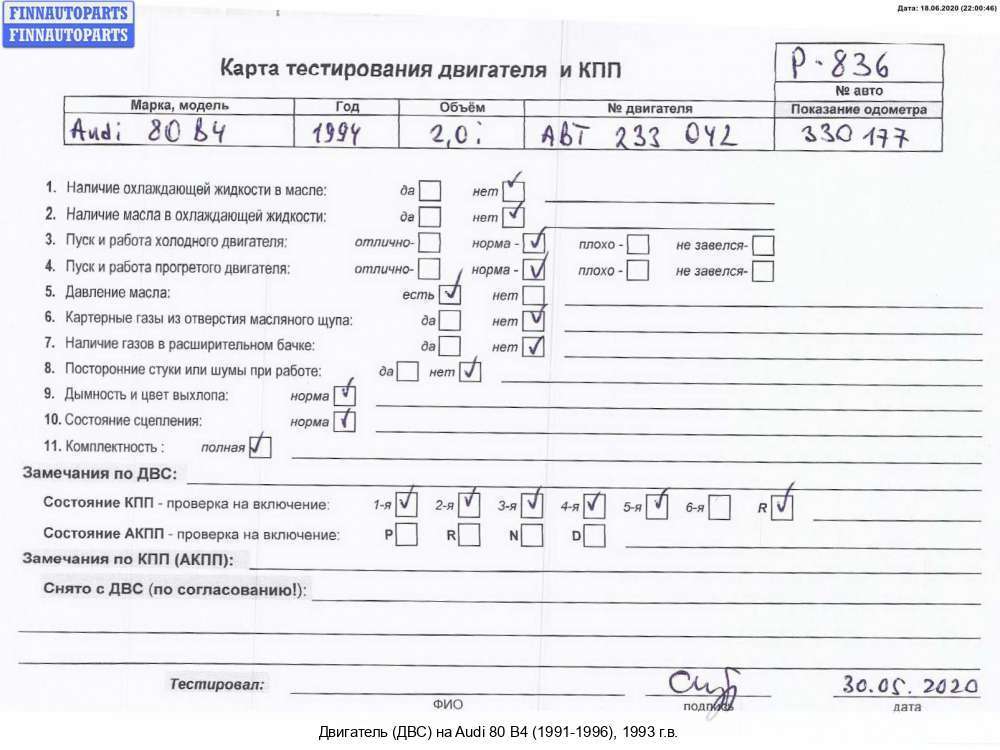 FINNAUTOPARTS
FINNAUTOPARTS
Дата: 18.06.2020 (22:00:46)
Карта тестирования двигателя и КПП
Р-836
№ авто
Марка, модель Год Объём № двигателя Показание одометра
Audi 80 B4 1994 2,0i ABT 233 042 330 177
1. Наличие охлаждающей жидкости в масле: да нет
2. Наличие масла в охлаждающей жидкости: да нет
3. Пуск и работа холодного двигателя: отлично- норма - плохо - не завелся-
4. Пуск и работа прогретого двигателя: отлично- норма - плохо - не завелся-
5. Давление масла: есть нет
6. Картерные газы из отверстия масляного щупа: да нет
7. Наличие газов в расширительном бачке: да нет
8. Посторонние стуки или шумы при работе: да нет
9. Дымность и цвет выхлопа: норма
10. Состояние сцепления: норма
11. Комплектность : полная
Замечания по ДВС:
Состояние КПП - проверка на включение: 1-я 2-я 3-я 4-я 5-я 6-я R
Состояние АКПП - проверка на включение: P R N D
Замечания по КПП (АКПП):
Снято с ДВС (по согласованию!):
Тестировал: 30.05.2020
ФИО подпись дата
Двигатель (ДВС) на Audi 80 B4 (1991-1996), 1993 г.в.